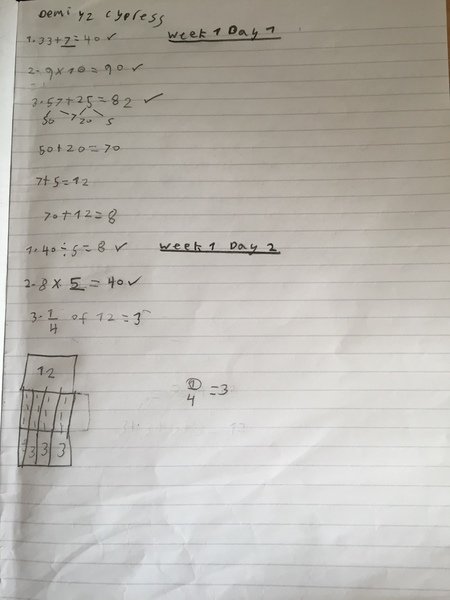 Demi y2 cypress
Week 1 Day 1
1. 33+7=40 ✓
2. 9x10=90 ✓
3. 57+25=82 ✓
50 7 20 5
50+20=70
7+5=12
70+12=8
1. 40÷5=8 ✓ Week 1 Day 2
2. 8x5=40 ✓
3. 1/4 of 12=3
12
1/4=3
3 3 3